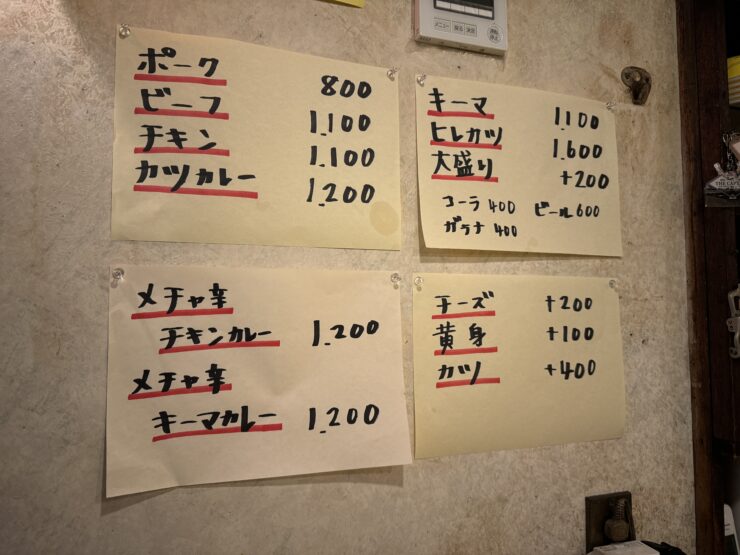 ポーク 800
ビーフ 1,100
チキン 1,100
カツカレー 1,200
キーマ 1,100
ヒレカツ 1,600
大盛り +200
コーラ 400 ビール 600
ガラナ 400
メチャ辛
チキンカレー 1,200
メチャ辛
キーマカレー 1,200
チーズ +200
黄身 +100
カツ +400
メニュー 戻る 決定